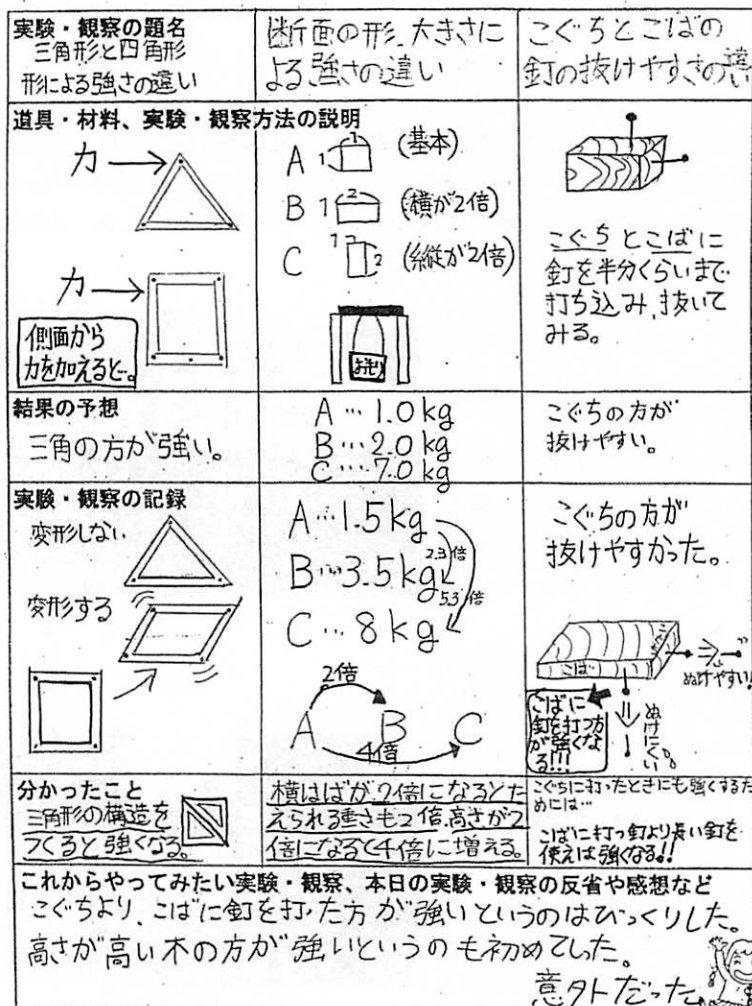 実験・観察の題名
三角形と四角形
形による強さの違い
断面の形、大きさに
よる強さの違い
こぐちとこばの
釘の抜けやすさの違い
道具・材料、実験・観察方法の説明
力→
力→
側面から
力を加えると。
A 1 1 (基本)
B 1 2 (横が2倍)
C 1 2 (縦が2倍)
おもり
こぐちとこばに
釘を半分くらいまで
打ち込み、抜いて
みる。
結果の予想
三角の方が強い。
A…1.0kg
B…2.0kg
C…7.0kg
こぐちの方が
抜けやすい。
実験・観察の記録
変形しない
変形する
A…1.5kg
2.3倍
B…3.5kg
5.3倍
C…8kg
2倍
A B C
4倍
こぐちの方が
抜けやすかった。
こば
ぬけやすい!
こばに
釘を打つ方
が強くな
る!!!
ぬけにくい。
分かったこと
三角形の構造を
つくると強くなる。
横はばが2倍になるとた
えられる重さも2倍、高さが2
倍になると4倍に増える。
こぐちに打ったときにも強くするた
めには…
こばに打つ釘より長い釘を
使えば強くなる!!
これからやってみたい実験・観察、本日の実験・観察の反省や感想など
こぐちより、こばに釘を打った方が強いというのはびっくりした。
高さが高い木の方が強いというのも初めてしった。
意外だった。